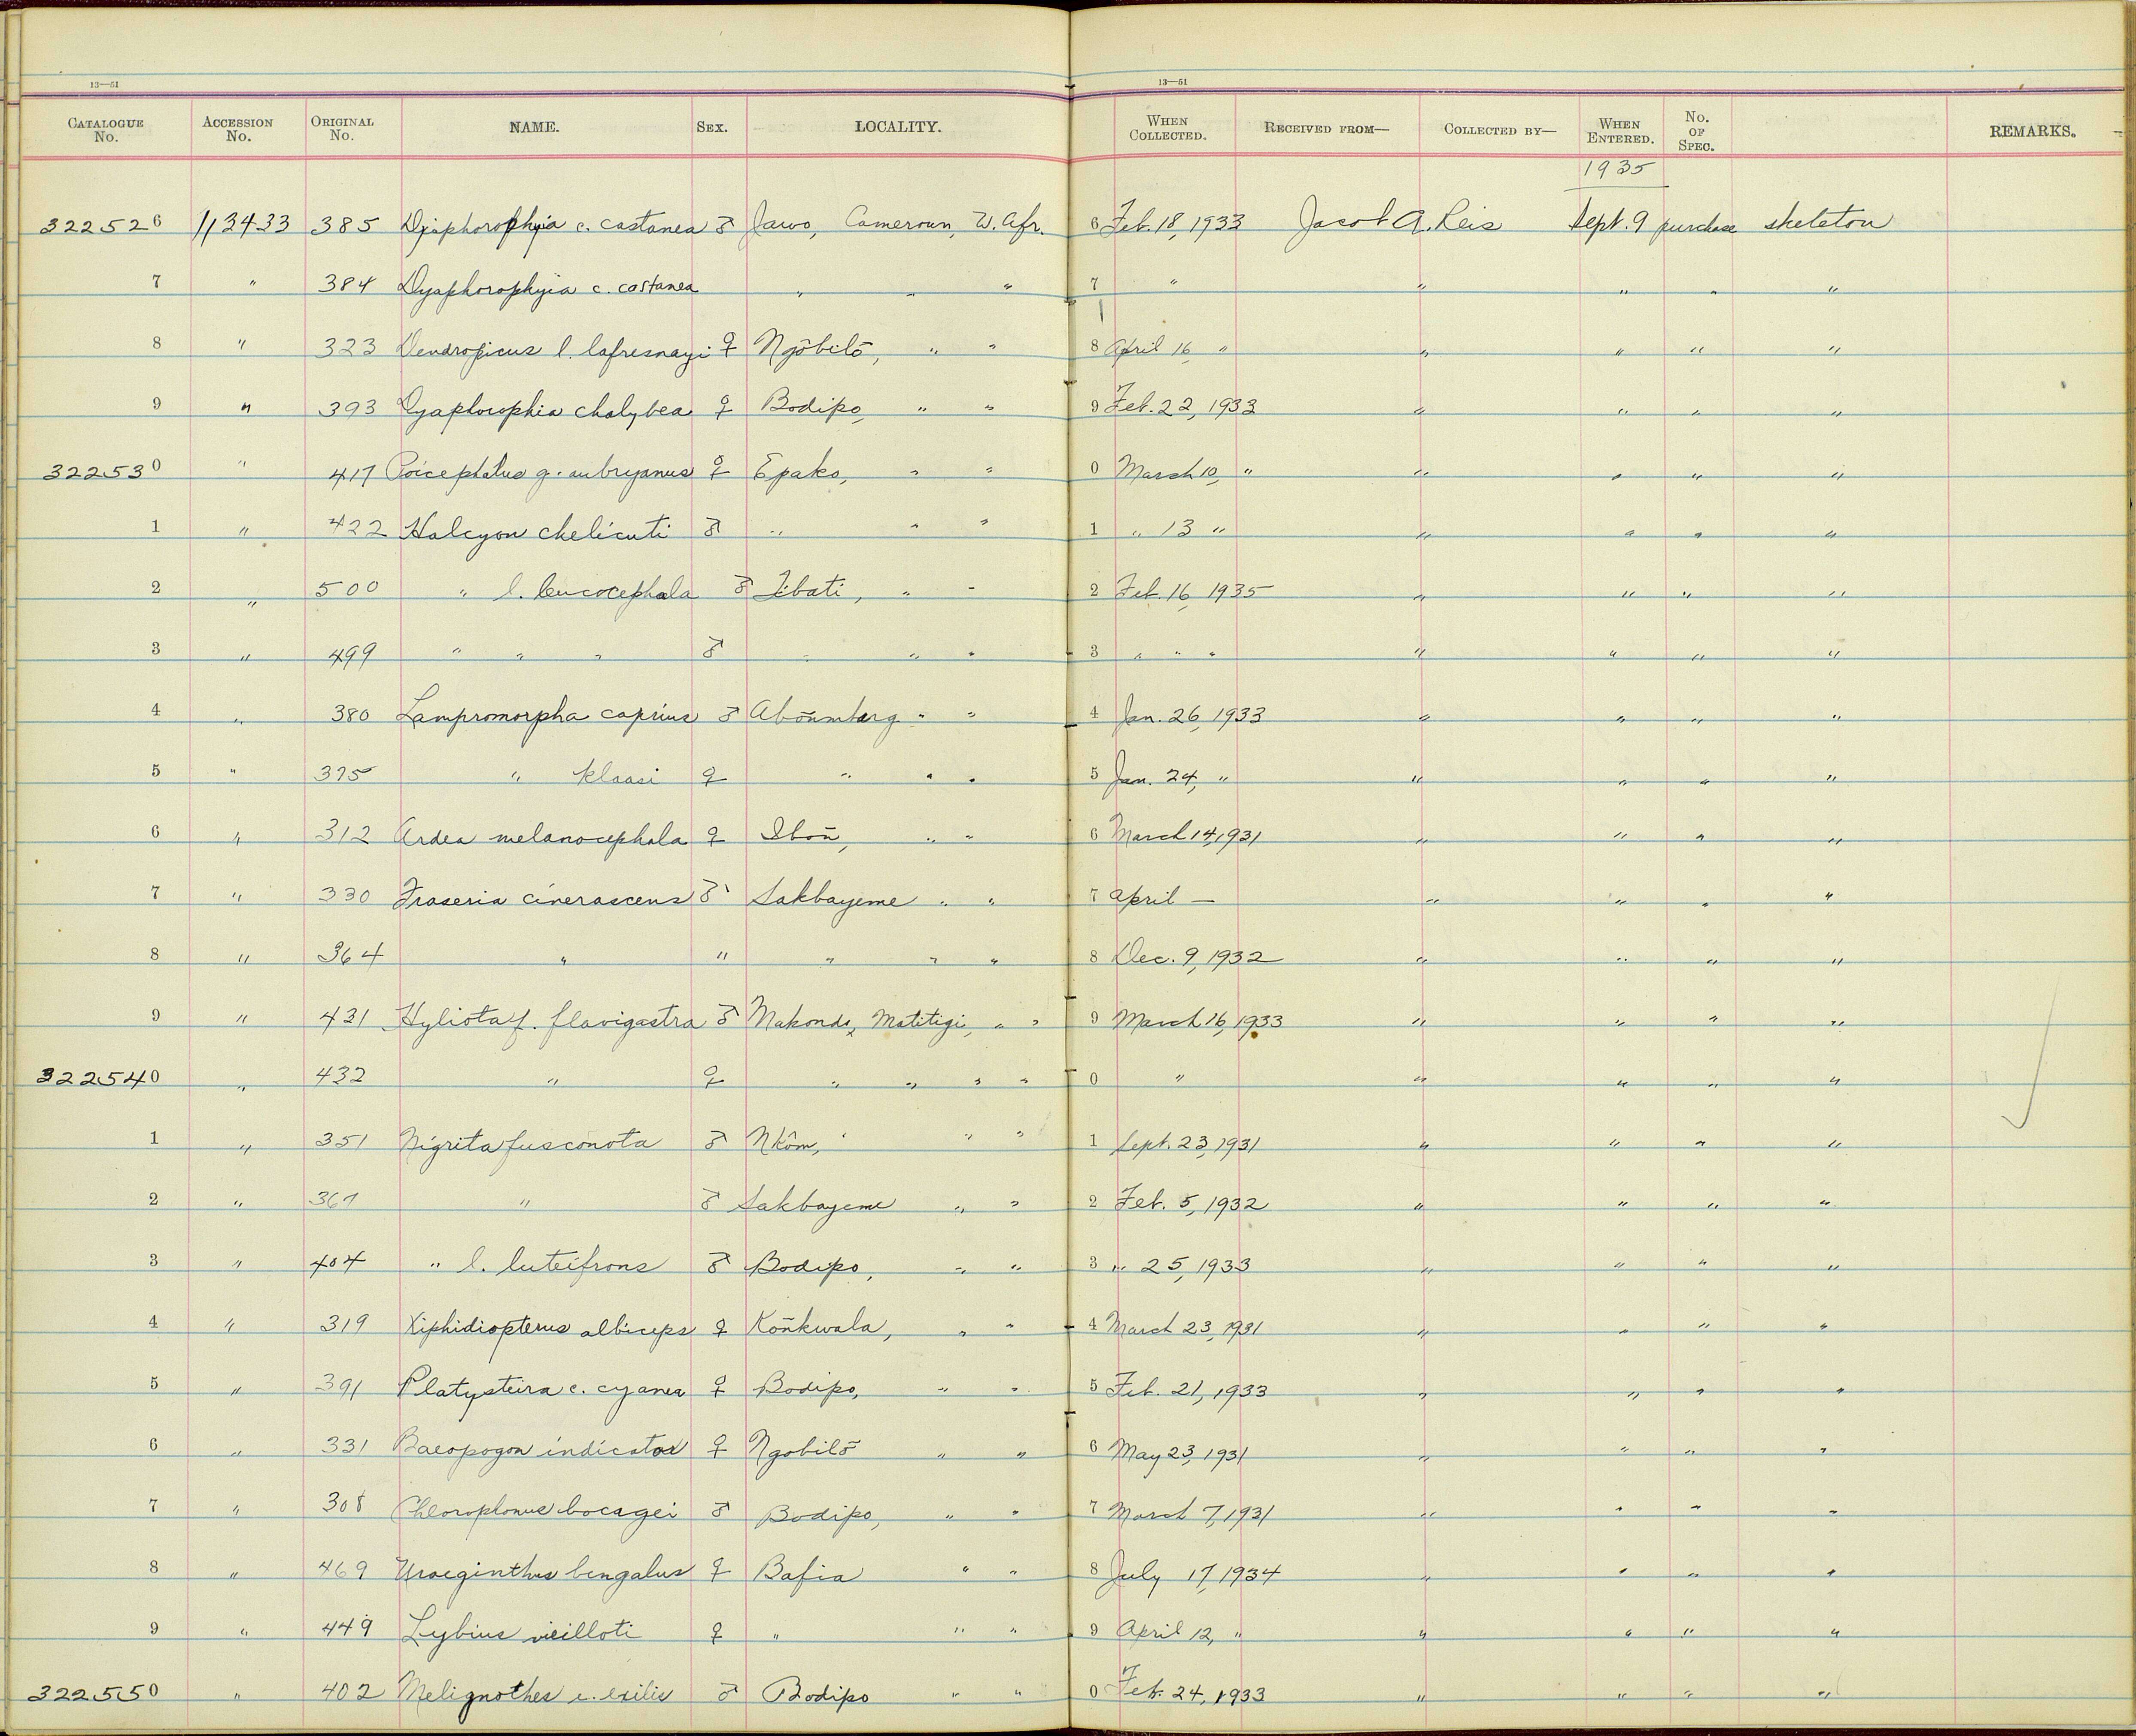 13—51 13—51
CATALOGUE No. ACCESSION No. ORIGINAL No. NAME. SEX. LOCALITY. WHEN COLLECTED. RECEIVED FROM— COLLECTED BY— WHEN ENTERED. No. OF SPEC. REMARKS.
1935
322526 113433 385 Dyaphorophyia c. castanea ♂ Jawo, Cameroun, W. Afr. 6 Feb. 18, 1933 Jacob A. Reis Sept. 9 purchase skeleton
7 " 384 Dyaphorophyia c. castanea " " " 7 " " " " "
8 " 323 Dendropicus l. lafresnayi ♀ Ngôbilō, " " 8 April 16 " " " " "
9 " 393 Dyaphorophia chalybea ♀ Bodipo, " " 9 Feb. 22, 1933 " " " "
322530 " 417 Poicephalus g. aubryanus ♀ Epako, " " 0 March 10, " " " " "
1 " 422 Halcyon chelicuti ♂ " " " 1 " 13 " " " " "
2 " 500 " l. leucocephala ♂ Tibati, " " 2 Feb. 16, 1935 " " " "
3 " 499 " " " ♂ " " " 3 " " " " " " "
4 " 380 Lampromorpha caprius ♂ Abōnmbarg " " 4 Jan. 26, 1933 " " " "
5 " 375 " klaasi ♀ " " " 5 Jan. 24, " " " " "
6 " 312 Ardea melanocephala ♀ Ibōn, " " 6 March 14, 1931 " " " "
7 " 330 Fraseria cinerascens ♂ Sakbayeme " " 7 April — " " " "
8 " 364 " " " " " 8 Dec. 9, 1932 " " " "
9 " 431 Hyliota f. flavigastra ♂ Makondo, Matitigi, " " 9 March 16, 1933 " " " "
322540 " 432 " ♀ " " " " 0 " " " " "
1 " 351 Nigrita fusconota ♂ Nkôm, " " 1 Sept. 23, 1931 " " " "
2 " 367 " ♂ Sakbayeme " " 2 Feb. 5, 1932 " " " "
3 " 404 " l. luteifrons ♂ Bodipo, " " 3 " 25, 1933 " " " "
4 " 319 Xiphidiopterus albiceps ♀ Kōnkwala, " " 4 March 23, 1931 " " " "
5 " 391 Platysteira c. cyanea ♀ Bodipo, " " 5 Feb. 21, 1933 " " " "
6 " 331 Baeopogon indicator ♀ Ngobilō " " 6 May 23, 1931 " " " "
7 " 308 Chlorophonus bocagei ♂ Bodipo, " " 7 March 7, 1931 " " " "
8 " 469 Uraeginthus bengalus ♀ Bafia " " 8 July 17, 1934 " " " "
9 " 449 Lybius vieilloti ♀ " " " 9 April 12, " " " " "
322550 " 402 Melignothes e. exilis ♂ Bodipo " " 0 Feb. 24, 1933 " " " "